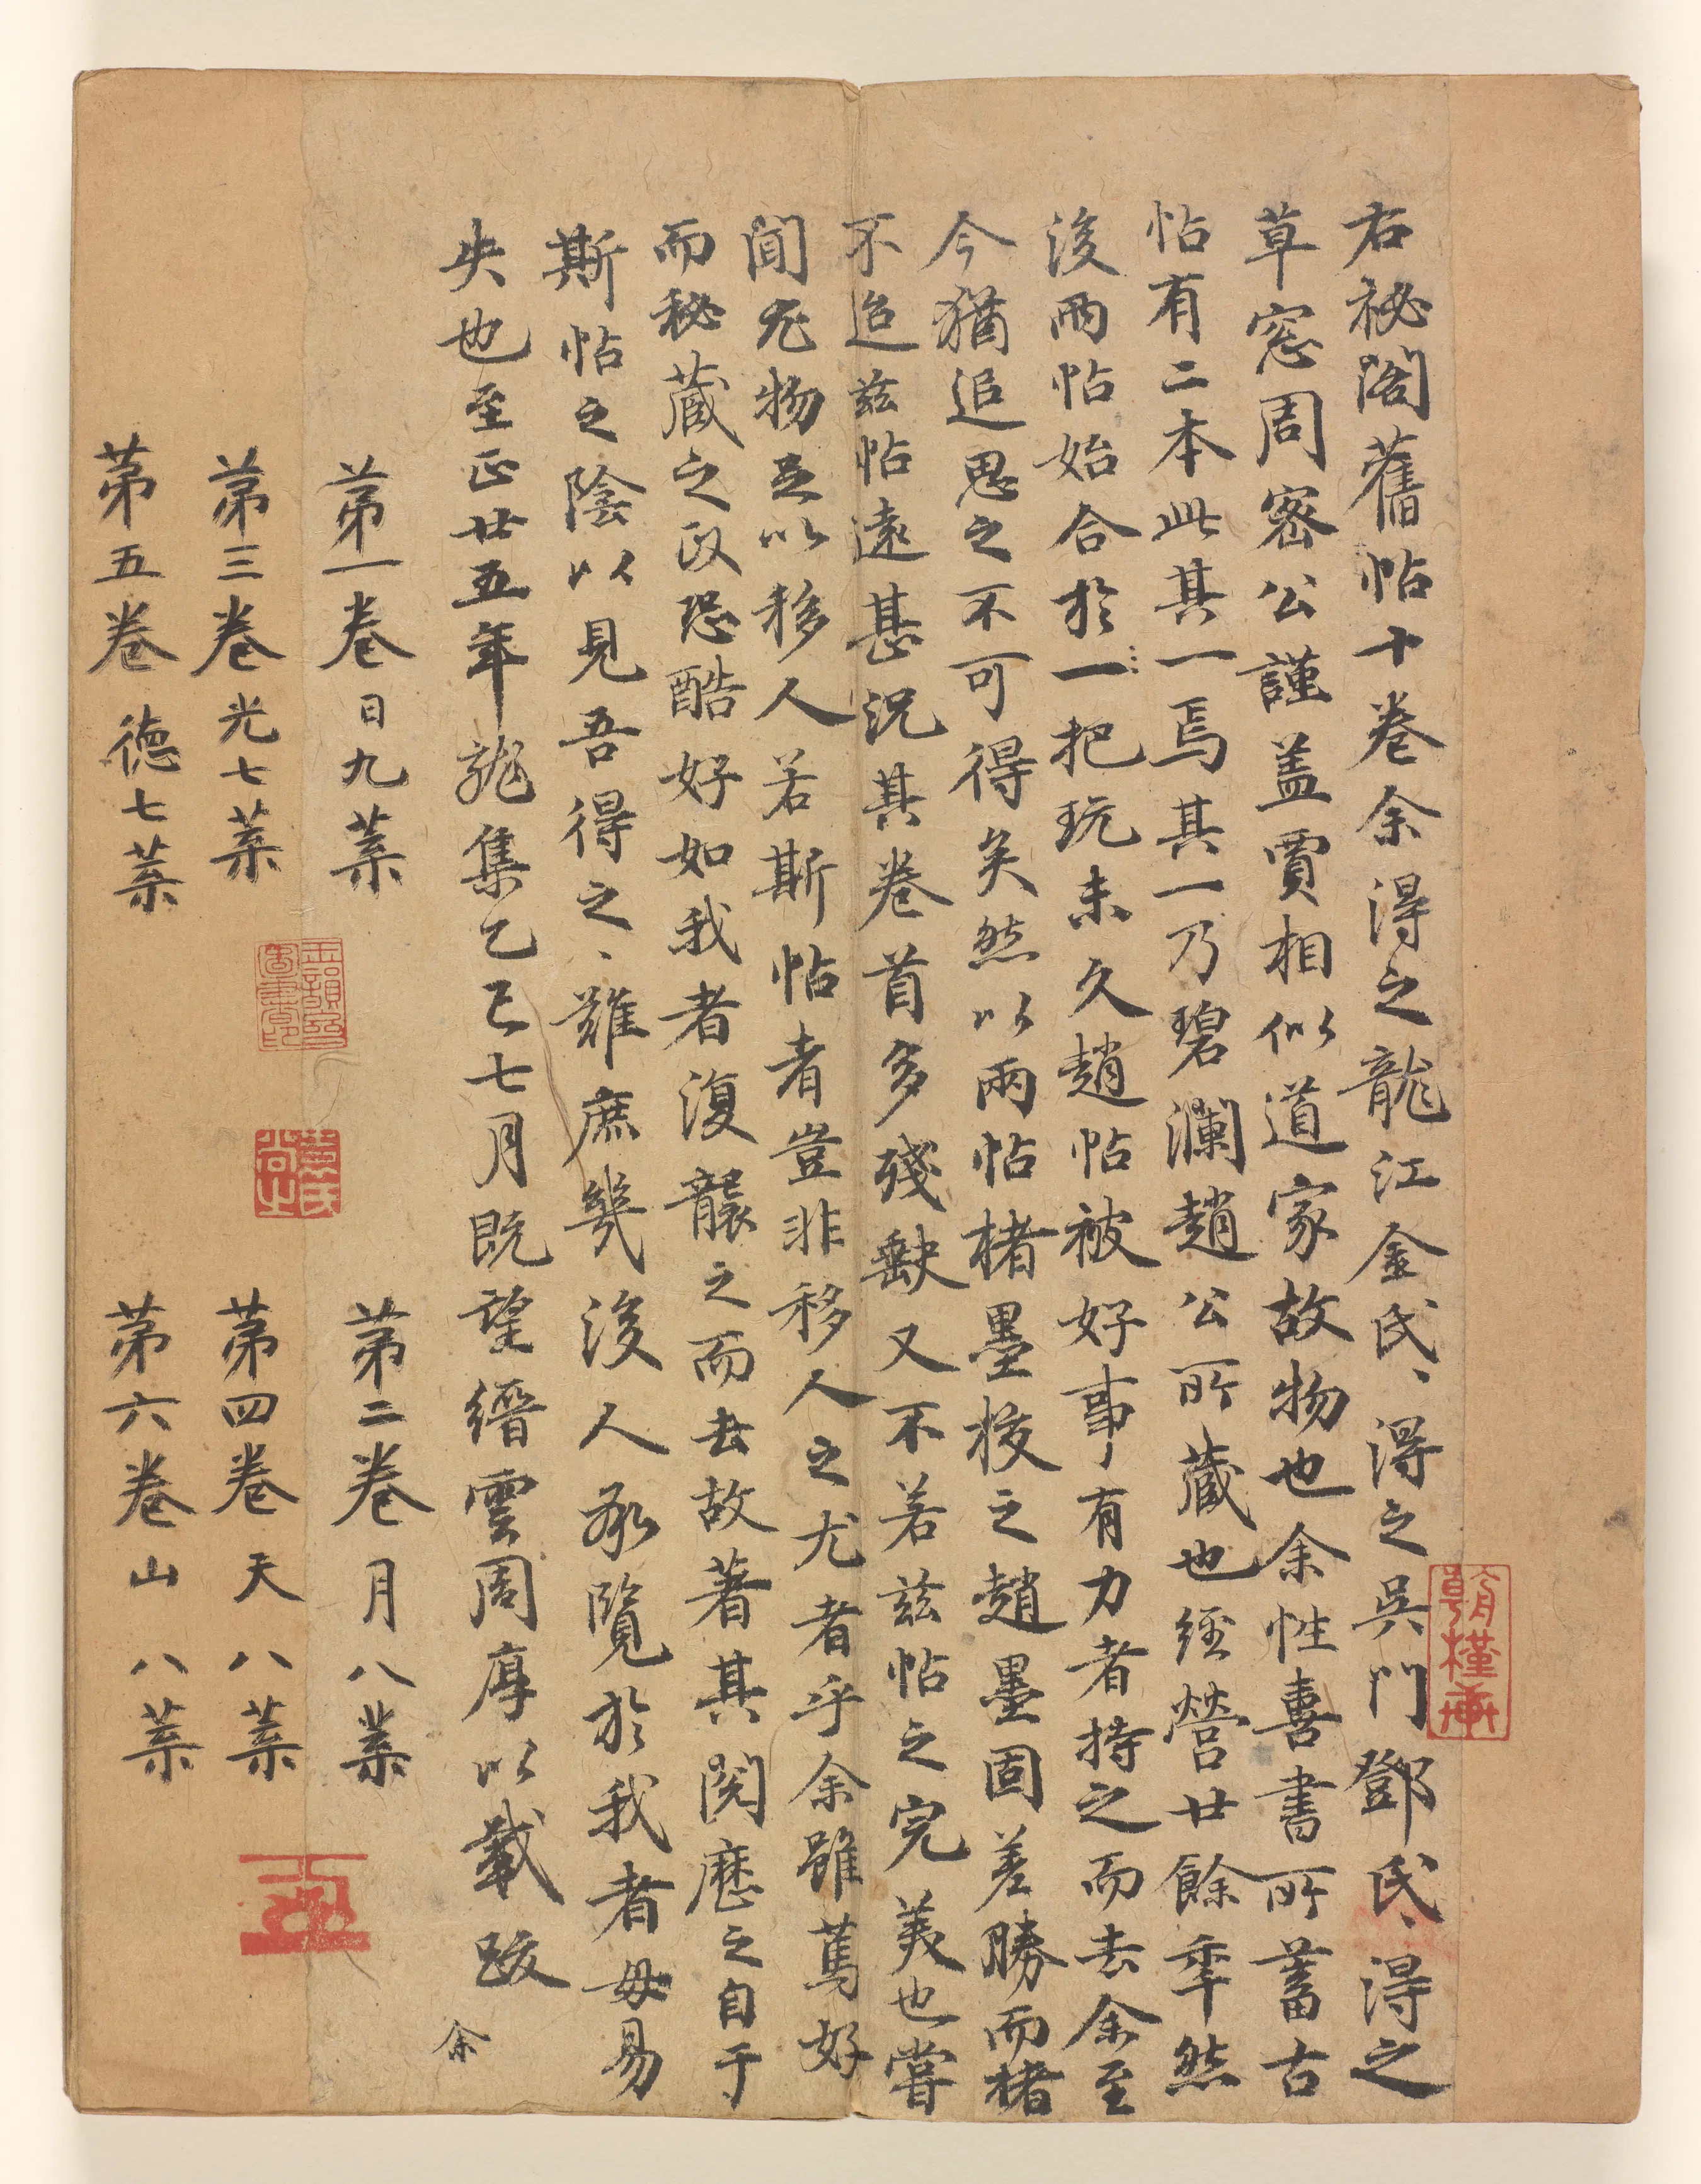 右祕閣舊帖十卷余得之龍江金氏、得之吳門鄧氏、得之
草窓周密公謹盖賈相似道家故物也余性喜書所蓄古
帖有二本此其一焉其一乃碧瀾趙公所藏也經營廿餘年然
後兩帖始合於一把玩未久趙帖被好事有力者持之而去余至
今猶追思之不可得矣然以兩帖楮墨挍之趙墨固差勝而楮
不迨兹帖遠甚況其卷首多殘缺又不若兹帖之完美也嘗
聞尤物足以移人若斯帖者豈非移人之尤者乎余雖篤好
而秘藏之政恐酷好如我者復襲之而去故著其閱歷之自于
斯帖之陰以見吾得之、難庶幾後人承覽於我者毋易
失也至正廿五年龍集乙巳七月既望縉雲周厚以載跋
余
第一卷 日九葉
第二卷 月八葉
第三卷 光七葉
第四卷 天八葉
第五卷 德七葉
第六卷 山八葉